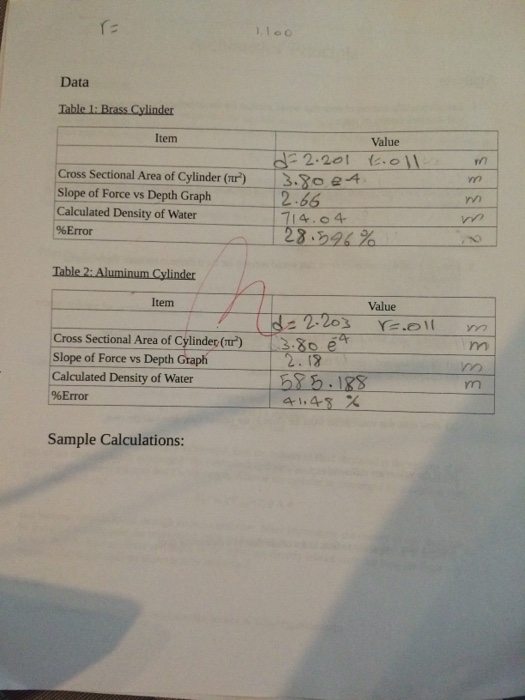 r=
1.100
Data
Table 1: Brass Cylinder
Item Value
d= 2.201 r=.011 m
Cross Sectional Area of Cylinder (πr²) 3.80 e-4 m
Slope of Force vs Depth Graph 2.66 m
Calculated Density of Water 714.04 m
%Error 28.596 %
Table 2: Aluminum Cylinder
Item Value
d= 2.203 r=.011 m
Cross Sectional Area of Cylinder (πr²) 3.80 e⁴ m
Slope of Force vs Depth Graph 2.18 m
Calculated Density of Water 585.188 m
%Error 41.48 %
Sample Calculations: